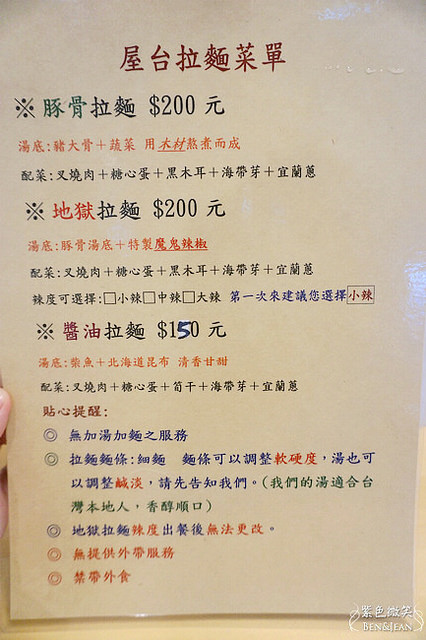 屋台拉麵菜單
※ 豚骨拉麵 $200 元
湯底:豬大骨＋蔬菜 用木材熬煮而成
配菜:叉燒肉＋糖心蛋＋黑木耳＋海帶芽＋宜蘭蔥
※ 地獄拉麵 $200 元
湯底:豚骨湯底＋特製魔鬼辣椒
配菜:叉燒肉＋糖心蛋＋黑木耳＋海帶芽＋宜蘭蔥
辣度可選擇:□小辣□中辣□大辣 第一次來建議您選擇小辣
※ 醬油拉麵 $150 元
湯底:柴魚＋北海道昆布 清香甘甜
配菜:叉燒肉＋糖心蛋＋筍干＋海帶芽＋宜蘭蔥
貼心提醒:
◎ 無加湯加麵之服務
◎ 拉麵麵條:細麵 麵條可以調整軟硬度，湯也可
以調整鹹淡，請先告知我們。(我們的湯適合台
灣本地人，香醇順口)
◎ 地獄拉麵辣度出餐後無法更改。
◎ 無提供外帶服務
◎ 禁帶外食
紫色微笑
BEN&JEAN